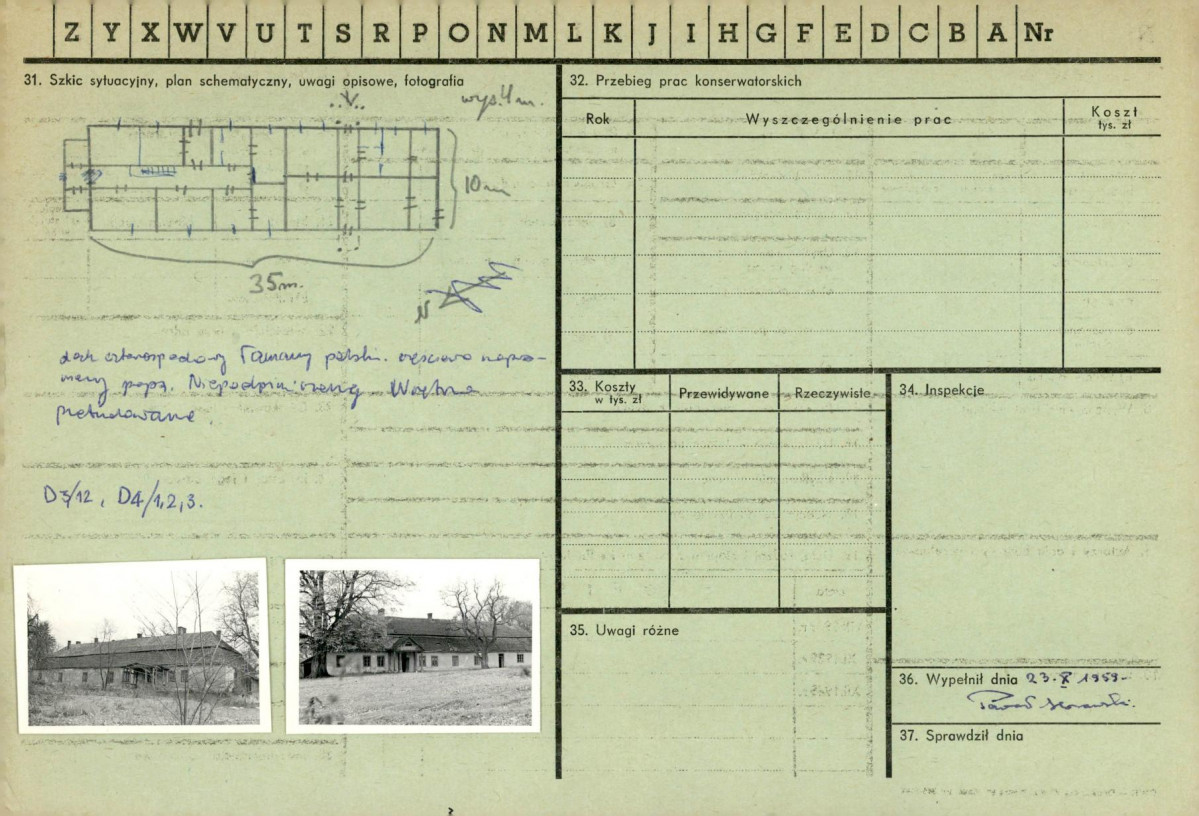 Z Y X W V U T S R P O N M L K J I H G F E D C B A Nr
31. Szkic sytuacyjny, plan schematyczny, uwagi opisowe, fotografia
wys. 4 m.
10 m
35 m.
N
dach czterospadowy łamany polski. częściowo
papą. Niepodpiwniczony. Wnętrze
przebudowane.
D3/12, D4/1,2,3.
32. Przebieg prac konserwatorskich
Rok
Wyszczególnienie prac
Koszt
tys. zł
33. Koszty
w tys. zł
Przewidywane
Rzeczywiste
34. Inspekcje
35. Uwagi różne
36. Wypełnił dnia 23.X 1959
37. Sprawdził dnia